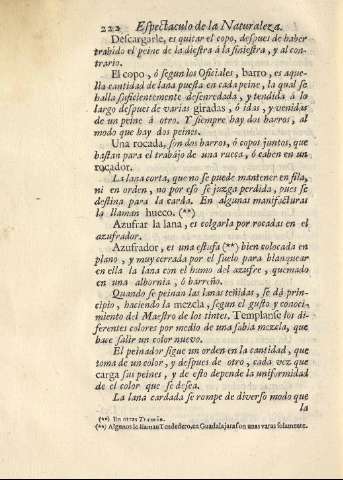 222 Espectaculo de la Naturaleza.
Descargarle, es quitar el copo, despues de haber
trahido el peine de la diestra à la siniestra, y al con-
trario.
El copo, ò segun los Oficiales, barro, es aque-
lla cantidad de lana puesta en cada peine, la qual se
halla suficientemente desenredada, y tendida à lo
largo despues de varias giradas, ò idas, y venidas
de un peine à otro. Y siempre hay dos barros, al
modo que hay dos peines.
Una rocada, son dos barros, ò copos juntos, que
bastan para el trabajo de una rueca, ò caben en un
rocador.
La lana corta, que no se puede mantener en fila,
ni en orden, no por eso se juzga perdida, pues se
destina para la carda. En algunas manifacturas
la llaman hueco. (**)
Azufrar la lana, es colgarla por rocadas en el
azufrador.
Azufrador, es una estufa (**) bien colocada en
plano, y muy cerrada por el suelo para blanquear
en ella la lana con el humo del azufre, quemado
en una albornia, ò barreño.
Quando se peinan las lanas teñidas, se dà prin-
cipio, haciendo la mezcla, segun el gusto y conoci-
miento del Maestro de los tintes. Templanse los di-
ferentes colores por medio de una sabia mezcla, que
hace salir un color nuevo.
El peinador sigue un orden en la cantidad, que
toma de un color, y despues de otro, cada vez que
carga sus peines, y de esto depende la uniformidad
de el color que se desea.
La lana cardada se rompe de diverso modo que
la
(**) En otras
(**) Algunos le llaman Tendedero, en Guadalajara son unas varas solamente.